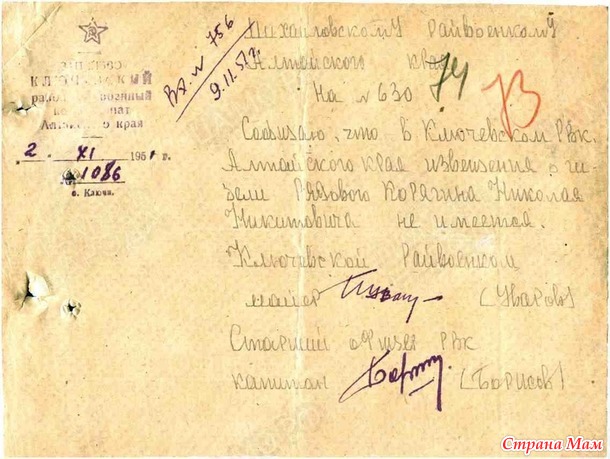 КЛЮЧЕВСКИЙ
районный военный
Алтайского края
2 XI 1951 г.
1086
с. Ключи.
Вх. № 756
9.11.51 г.
Михайловскому Райвоенкому
Алтайского края
На № 630
74
73
Сообщаю, что в Ключевском РВК
Алтайского края извещения о ги-
бели рядового Корягина Николая
Никитовича не имеется.
Ключевской Райвоенком
майор (Уваров)
Старший офицер РВК
капитан (Борисов)
Страна Мам